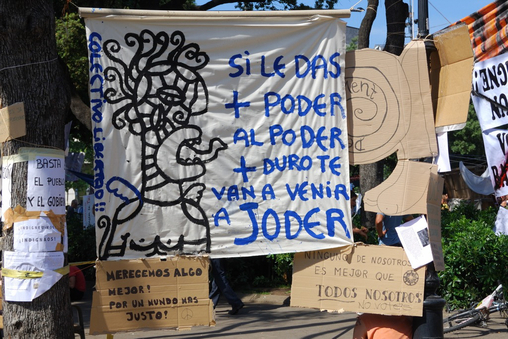 COLECTIVO
SI LE DAS
+ PODER
AL PODER
+ DURO TE
VAN A VENIR
A JODER
BASTA
EL PUEBLO
Y EL GOBIERNO
INDIGNADOS
MERECEMOS ALGO
MEJOR!
POR UN MUNDO MAS
JUSTO!
NINGUNO DE NOSOTROS
ES MEJOR QUE
TODOS NOSOTROS
NO VOTES